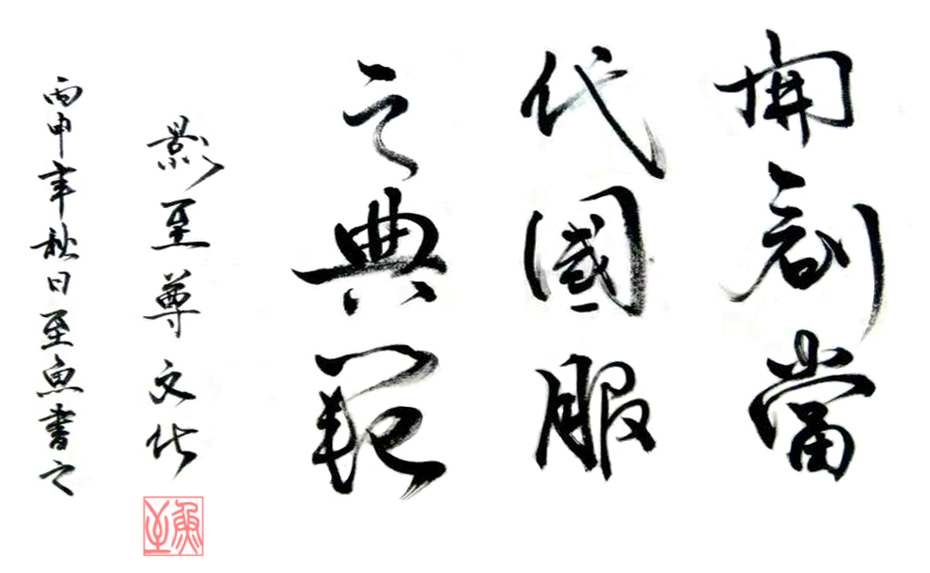 開創當
代國服
之典範
影至尊文化
丙申年秋日至魚書之
至魚